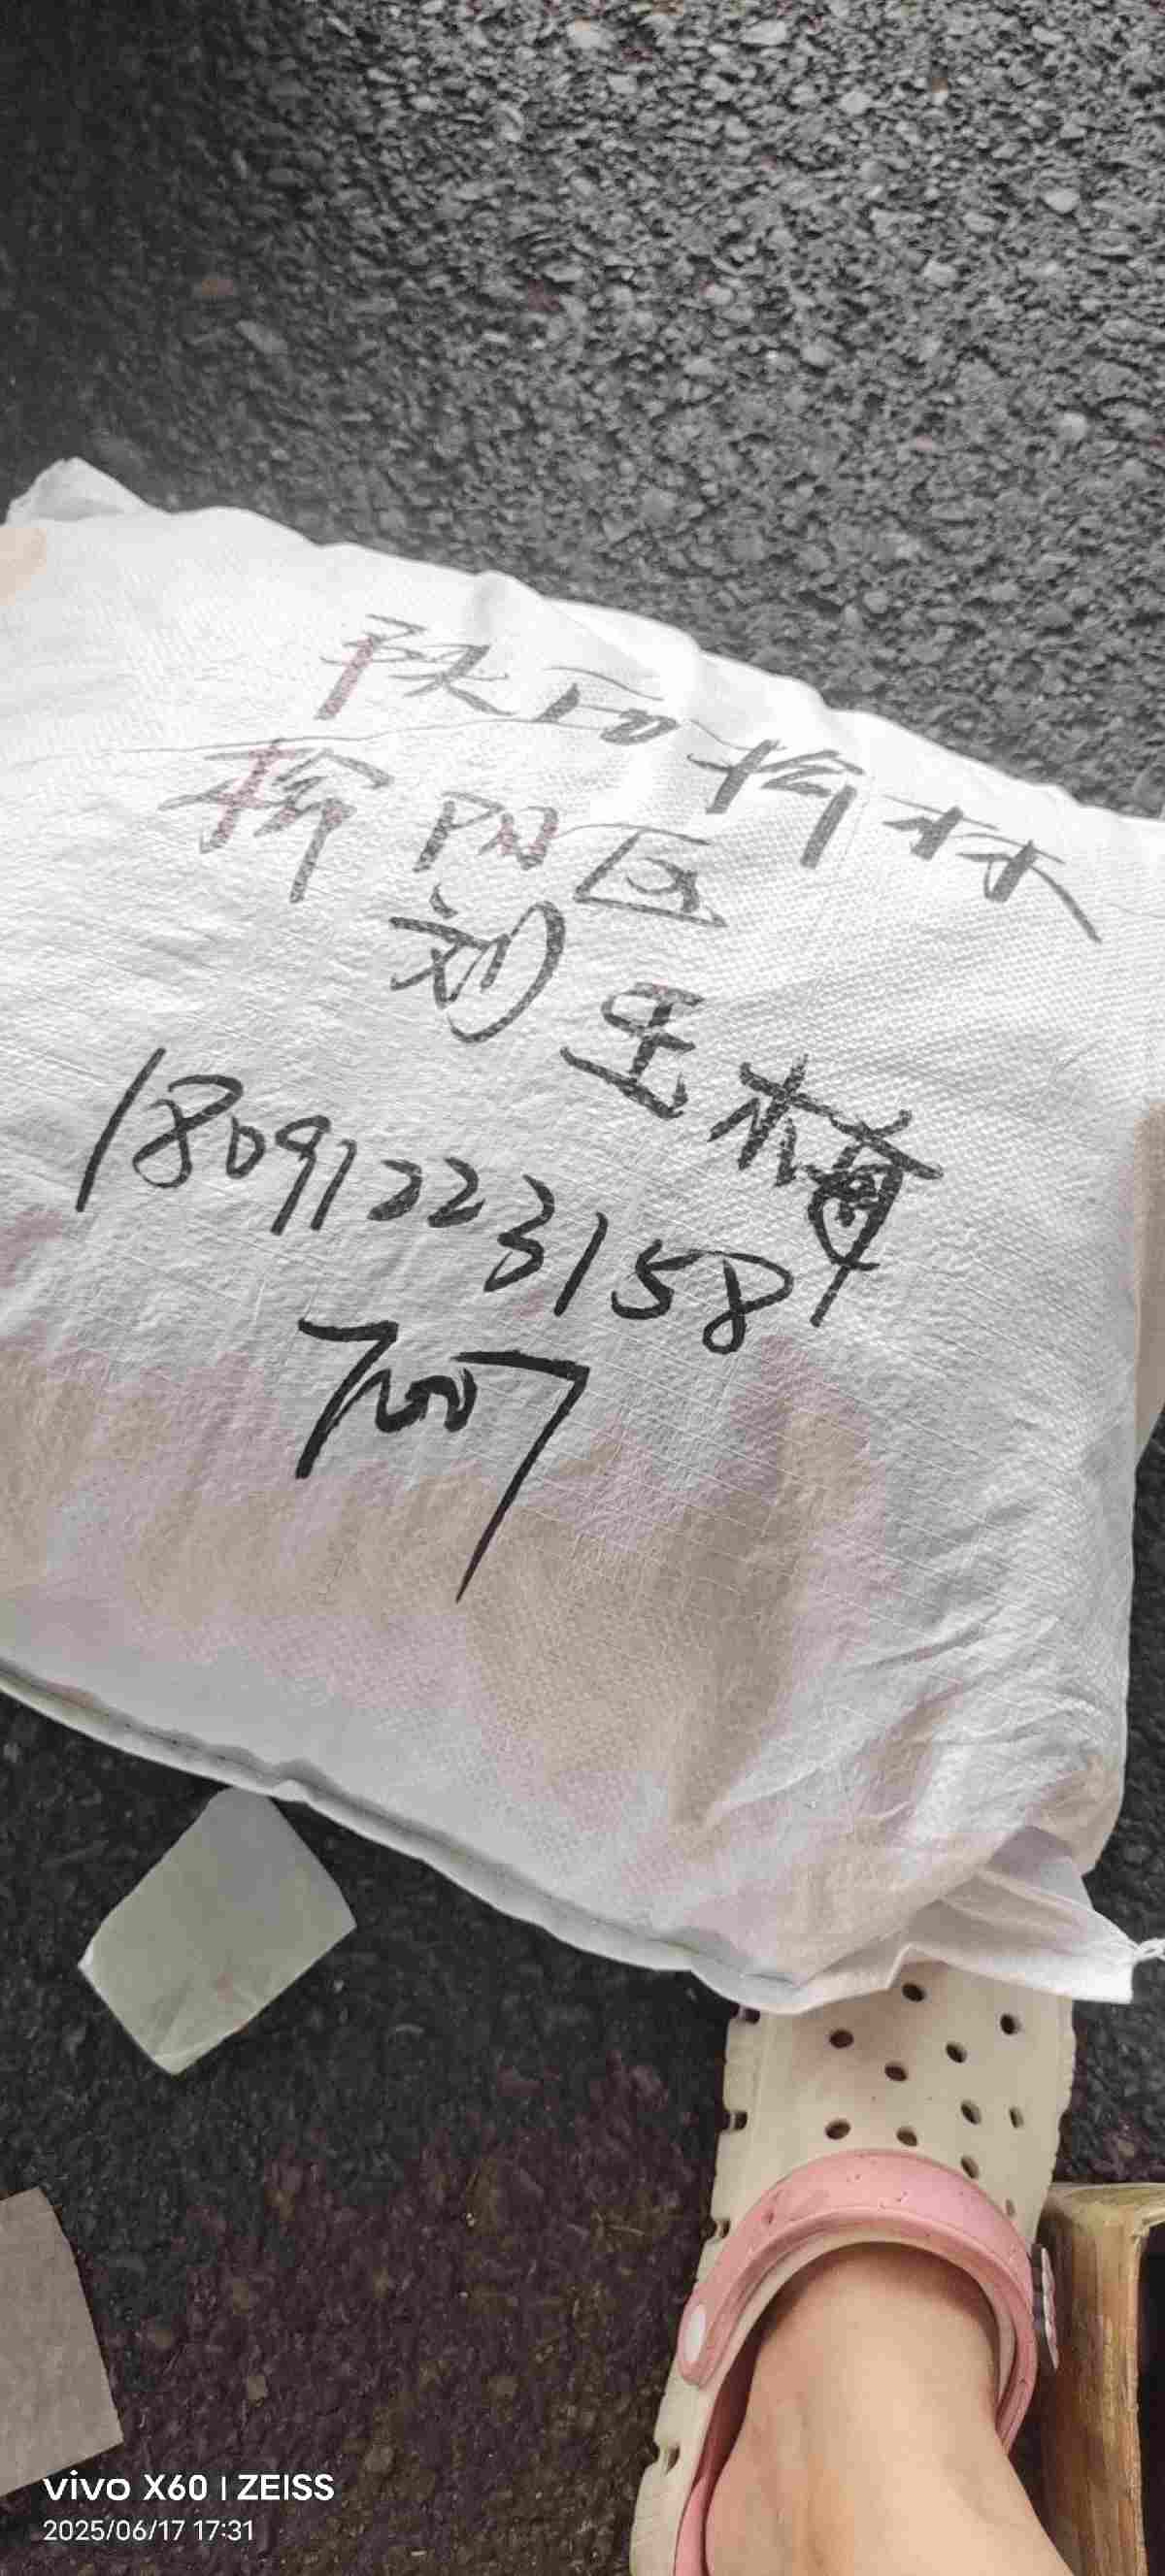 陕西榆林
榆阳区
刘玉梅
18091223158
7007
vivo X60 | ZEISS
2025/06/17 17:31